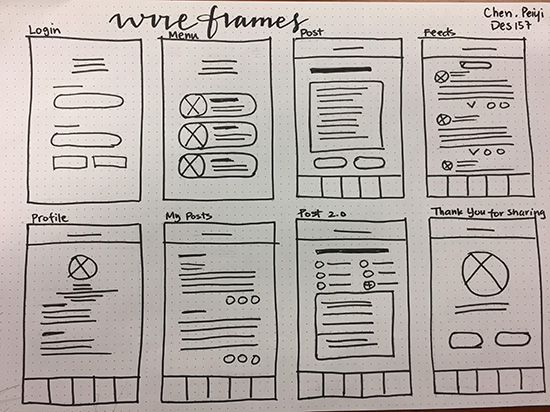 wireframes
Chen, Peiyi
Des 157
Login
Menu
Post
Feeds
Profile
My Posts
Post 2.0
Thank You for sharing